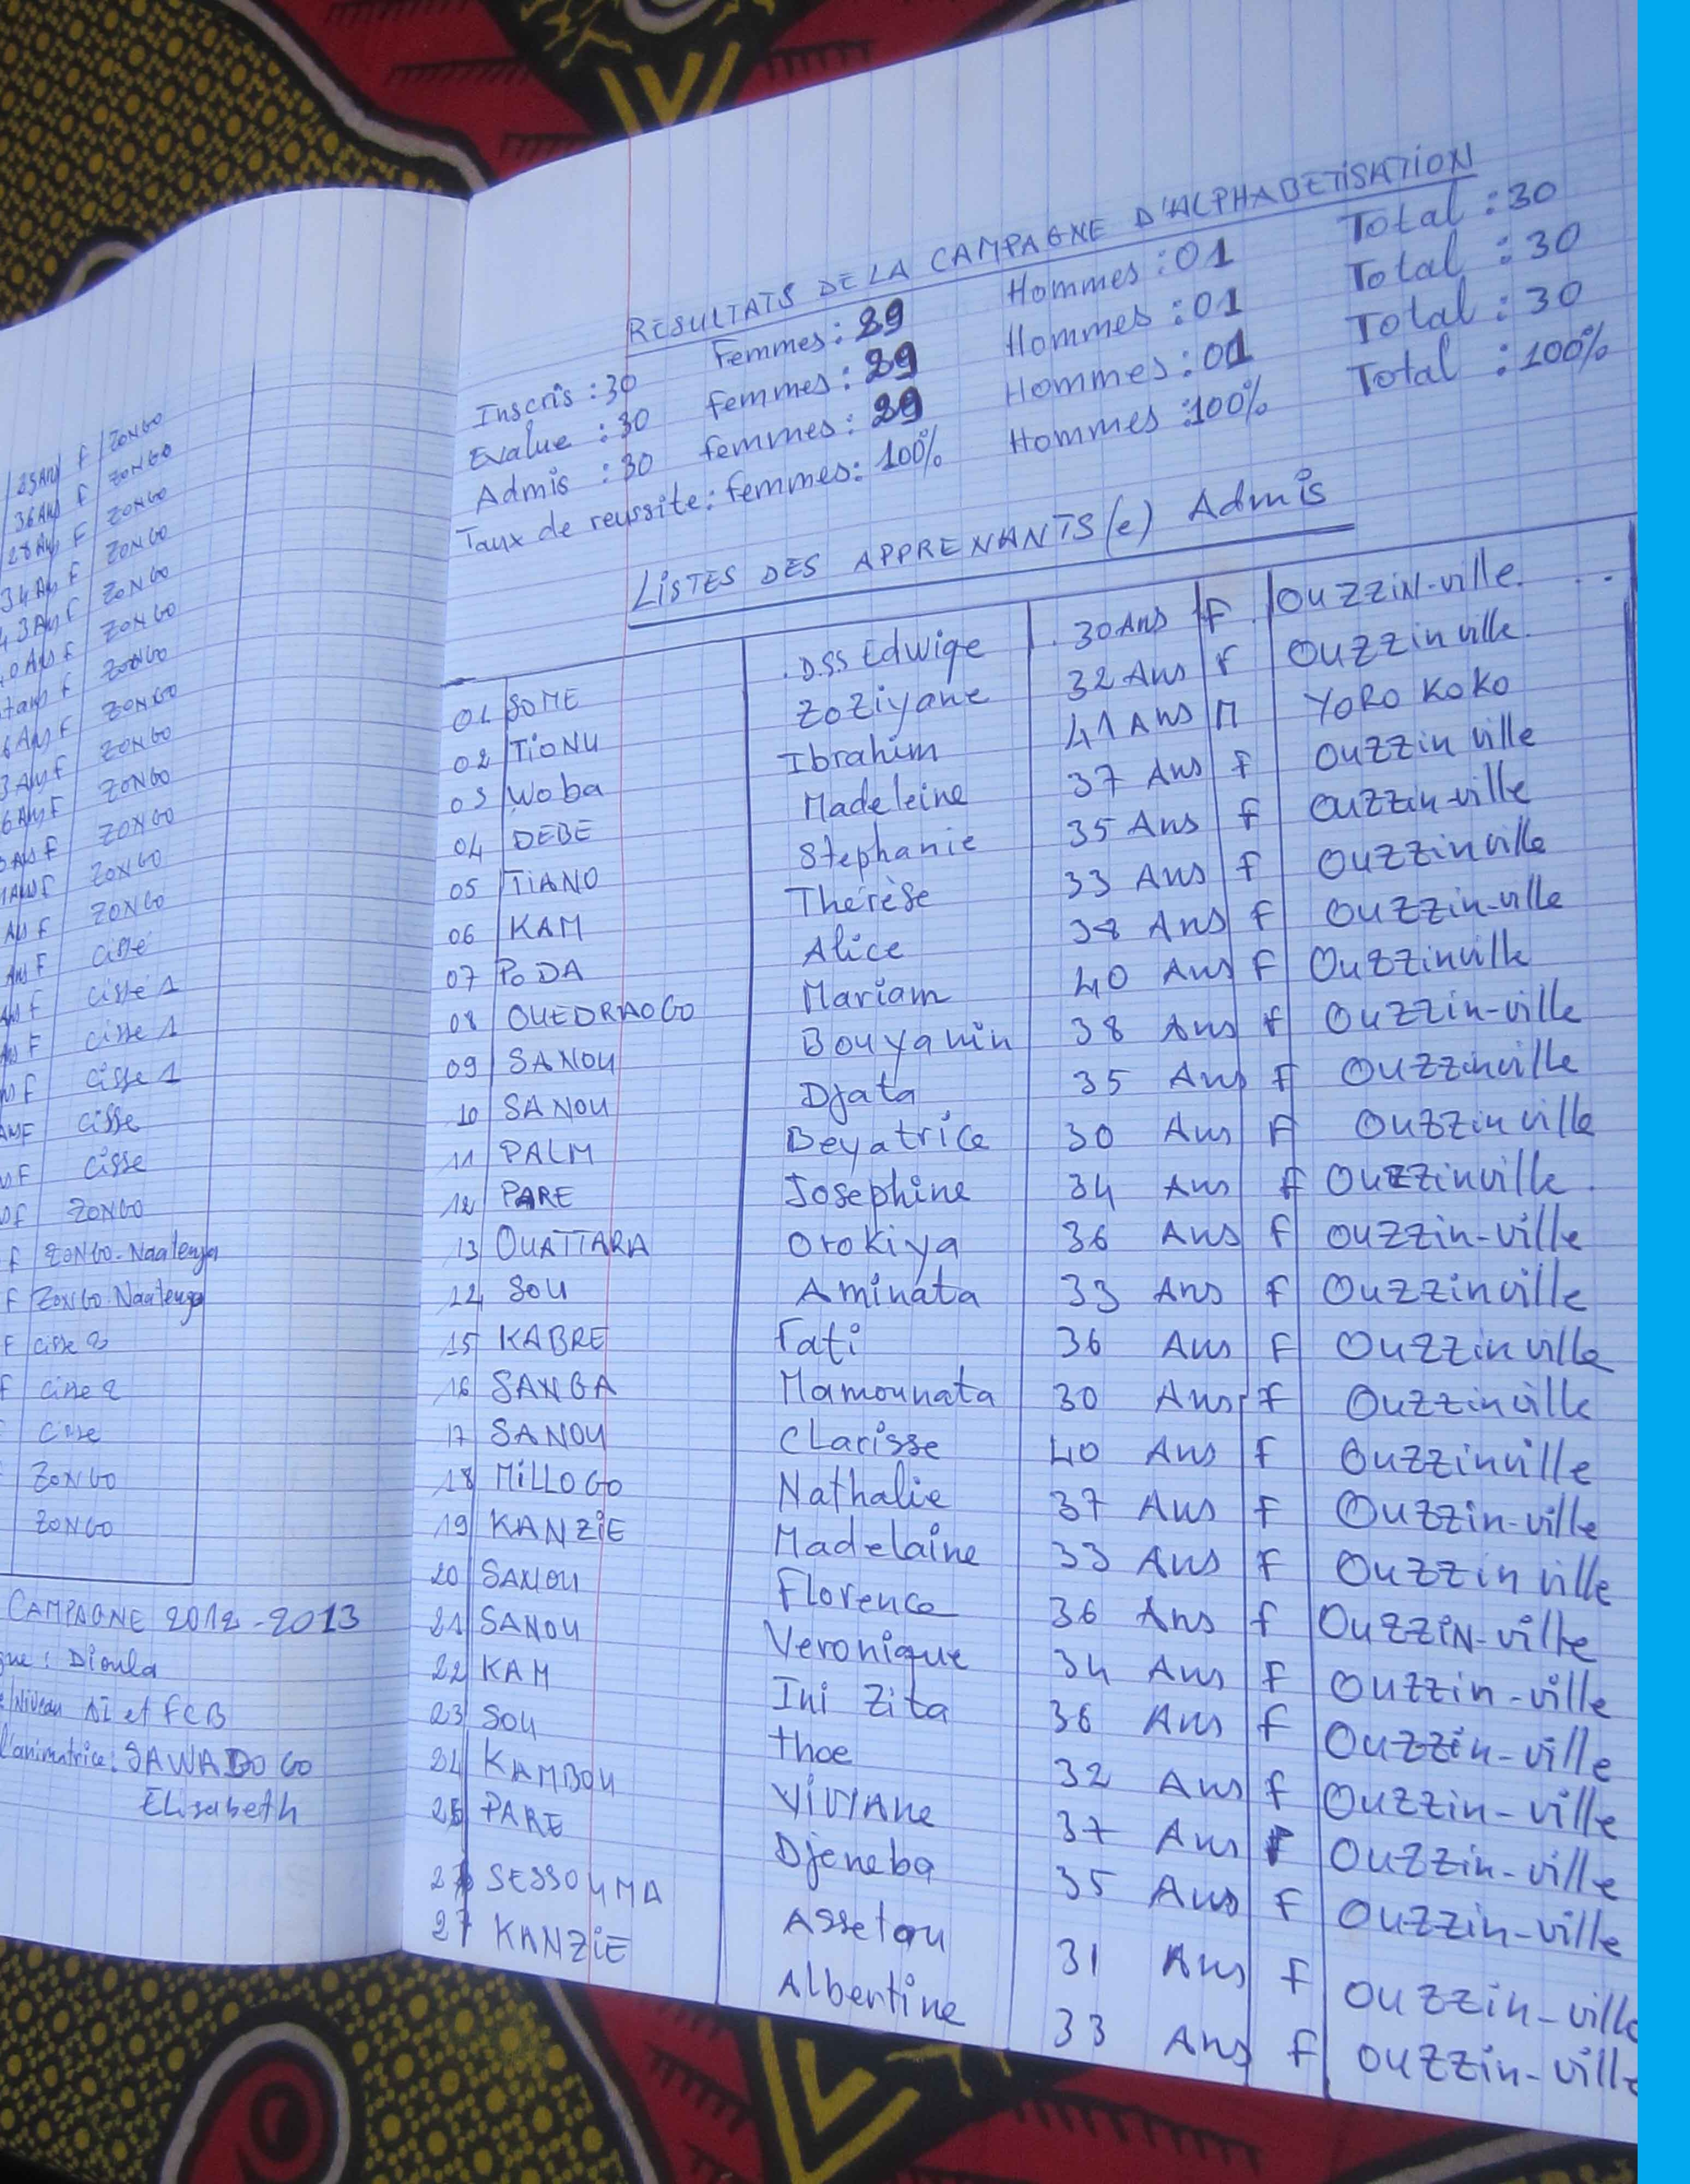 23Ans F ZONGO
36Ans F ZONGO
28Ans F ZONGO
34Ans F ZONGO
43Ans F ZONGO
0Ans F ZONGO
F ZONGO
6Ans F ZONGO
3Ans F ZONGO
6Ans F ZONGO
Ans F ZONGO
Ans F ZONGO
Ans F ZONGO
Ans F Cisse
Ans F Cisse 1
F Cisse 1
F Cisse 1
F Cisse
F Cisse
F ZONGO
F ZONGO-Naatenga
F ZONGO-Naatenga
F Cisse 2
F Cisse 2
Cisse
ZONGO
ZONGO
CAMPAGNE 2012-2013
gue : Dioula
Niveau AI et FCB
l'animatrice : SAWADOGO
Elisabeth
RESULTATS DE LA CAMPAGNE D'ALPHABETISATION
Inscris : 30 Femmes : 29 Hommes : 01 Total : 30
Evalue : 30 femmes : 29 Hommes : 01 Total : 30
Admis : 30 femmes : 29 Hommes : 01 Total : 30
Taux de reussite : femmes : 100% Hommes : 100% Total : 100%
LISTES DES APPRENANTS(e) Admis
01 SOME DSS Edwige 30 Ans F OUZZIN-ville
02 TIONU Zoziyane 32 Ans F OUZZin ville
03 Woba Ibrahim 41 Ans M YORO KOKO
04 DEBE Madeleine 37 Ans F OUZZin ville
05 TIANO Stephanie 35 Ans F OUZZin-ville
06 KAM Thérèse 33 Ans F OUZZinville
07 PODA Alice 38 Ans F OUZZin-ville
08 OUEDRAOGO Mariam 40 Ans F OUZZinville
09 SANOU Bouyanin 38 Ans F OUZZin-ville
10 SANOU Djata 35 Ans F OUZZinville
11 PALM Beyatrice 30 Ans F OUZZin ville
12 PARE Josephine 34 Ans F OUZZinville
13 OUATTARA Orokiya 36 Ans F OUZZin-ville
14 SOU Aminata 33 Ans F OUZZinville
15 KABRE Fati 36 Ans F OUZZin ville
16 SANGA Mamounata 30 Ans F OUZZinville
17 SANOU Clarisse 40 Ans F OUZZinville
18 MILLOGO Nathalie 37 Ans F OUZZin-ville
19 KANZIE Madelaine 33 Ans F OUZZin ville
20 SANOU Florence 36 Ans F OUZZIN-ville
21 SANOU Veronique 34 Ans F OUZZin-ville
22 KAM Ini Zita 36 Ans F OUZZin-ville
23 SOU thoe 32 Ans F OUZZin-ville
24 KAMBOU Viviane 37 Ans F OUZZin-ville
25 PARE Djeneba 35 Ans F OUZZin-ville
26 SESSOUMA Assetou 31 Ans F OUZZin-ville
27 KANZIE Albertine 33 Ans F OUZZin-ville